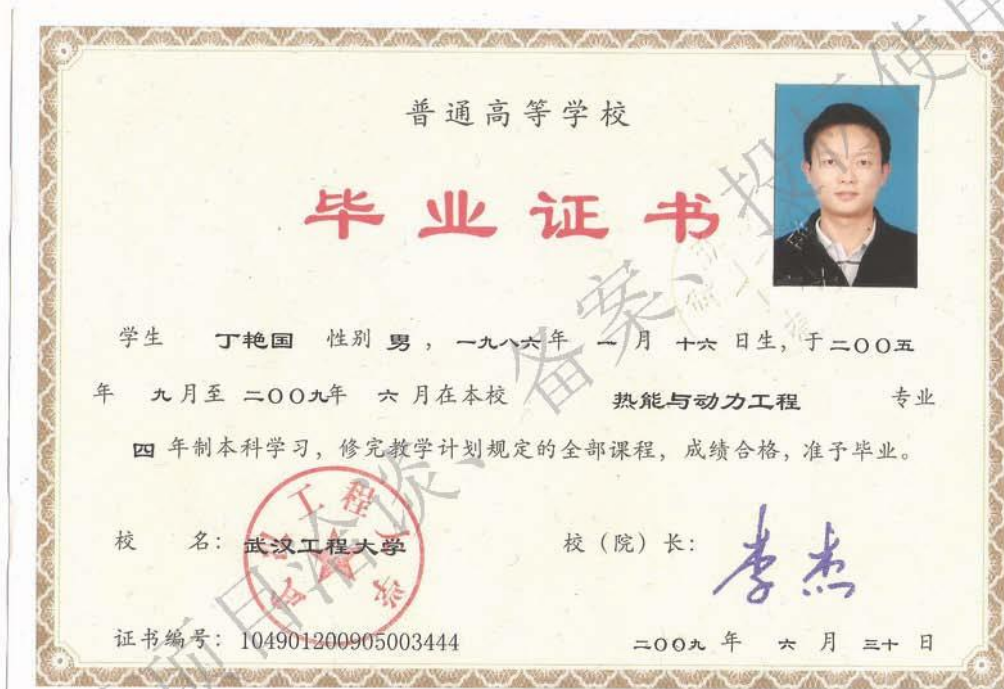 普通高等学校
毕业证书
学生 丁艳国 性别 男，一九八六年 一 月 十六 日生，于二〇〇五
年 九月至 二〇〇九年 六 月在本校 热能与动力工程 专业
四 年制本科学习，修完教学计划规定的全部课程，成绩合格，准予毕业。
校 名：武汉工程大学 校（院）长：李杰
武汉工程大学
证书编号：104901200905003444 二〇〇九 年 六 月 三十 日
项目洽谈、备案、投标使用